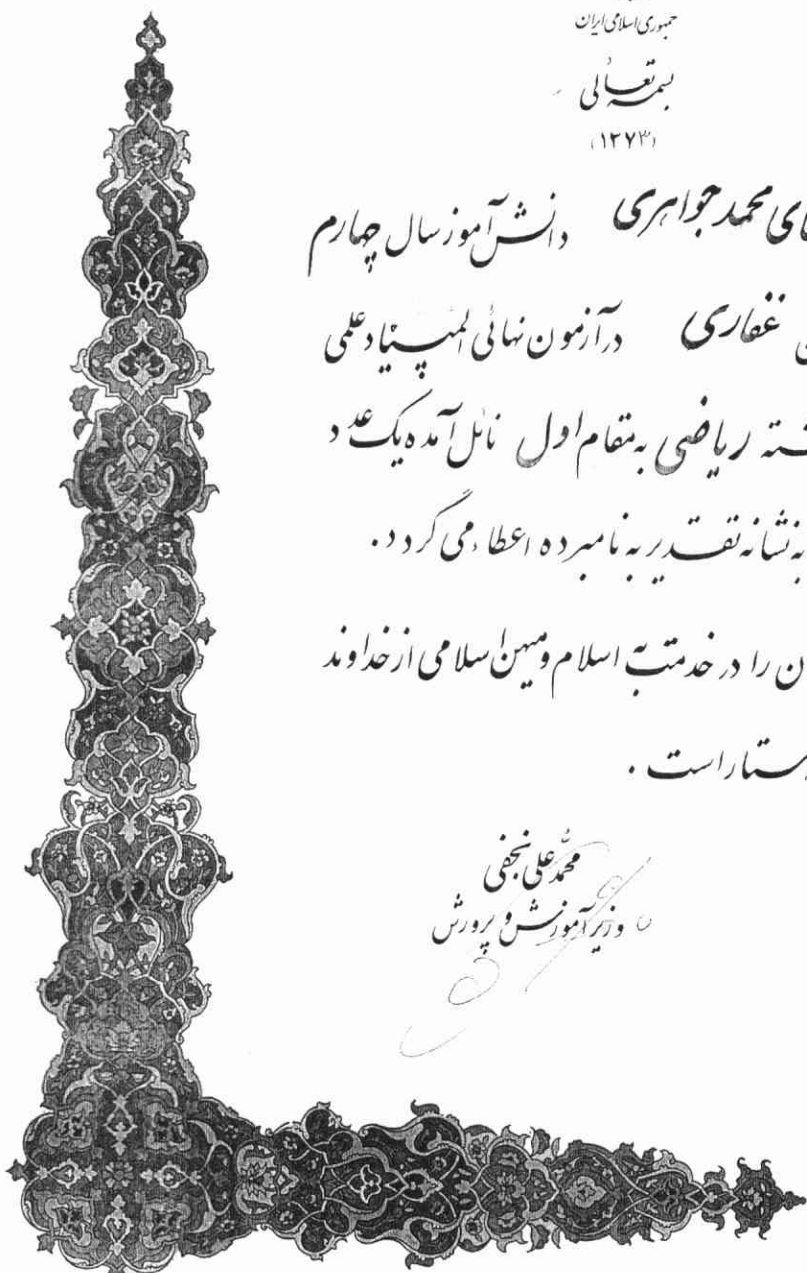 جمهوری اسلامی ایران
بسمه تعالی
(۱۳۷۳)
محمد جواهری دانش آموز سال چهارم
غفاری در آزمون نهائی المپیاد علمی
ریاضی به مقام اول نائل آمده یک عدد
به نشانه تقدیر به نامبرده اعطاء می گردد.
را در خدمت به اسلام و میهن اسلامی از خداوند
است.
محمد علی نجفی
وزیر آموزش و پرورش